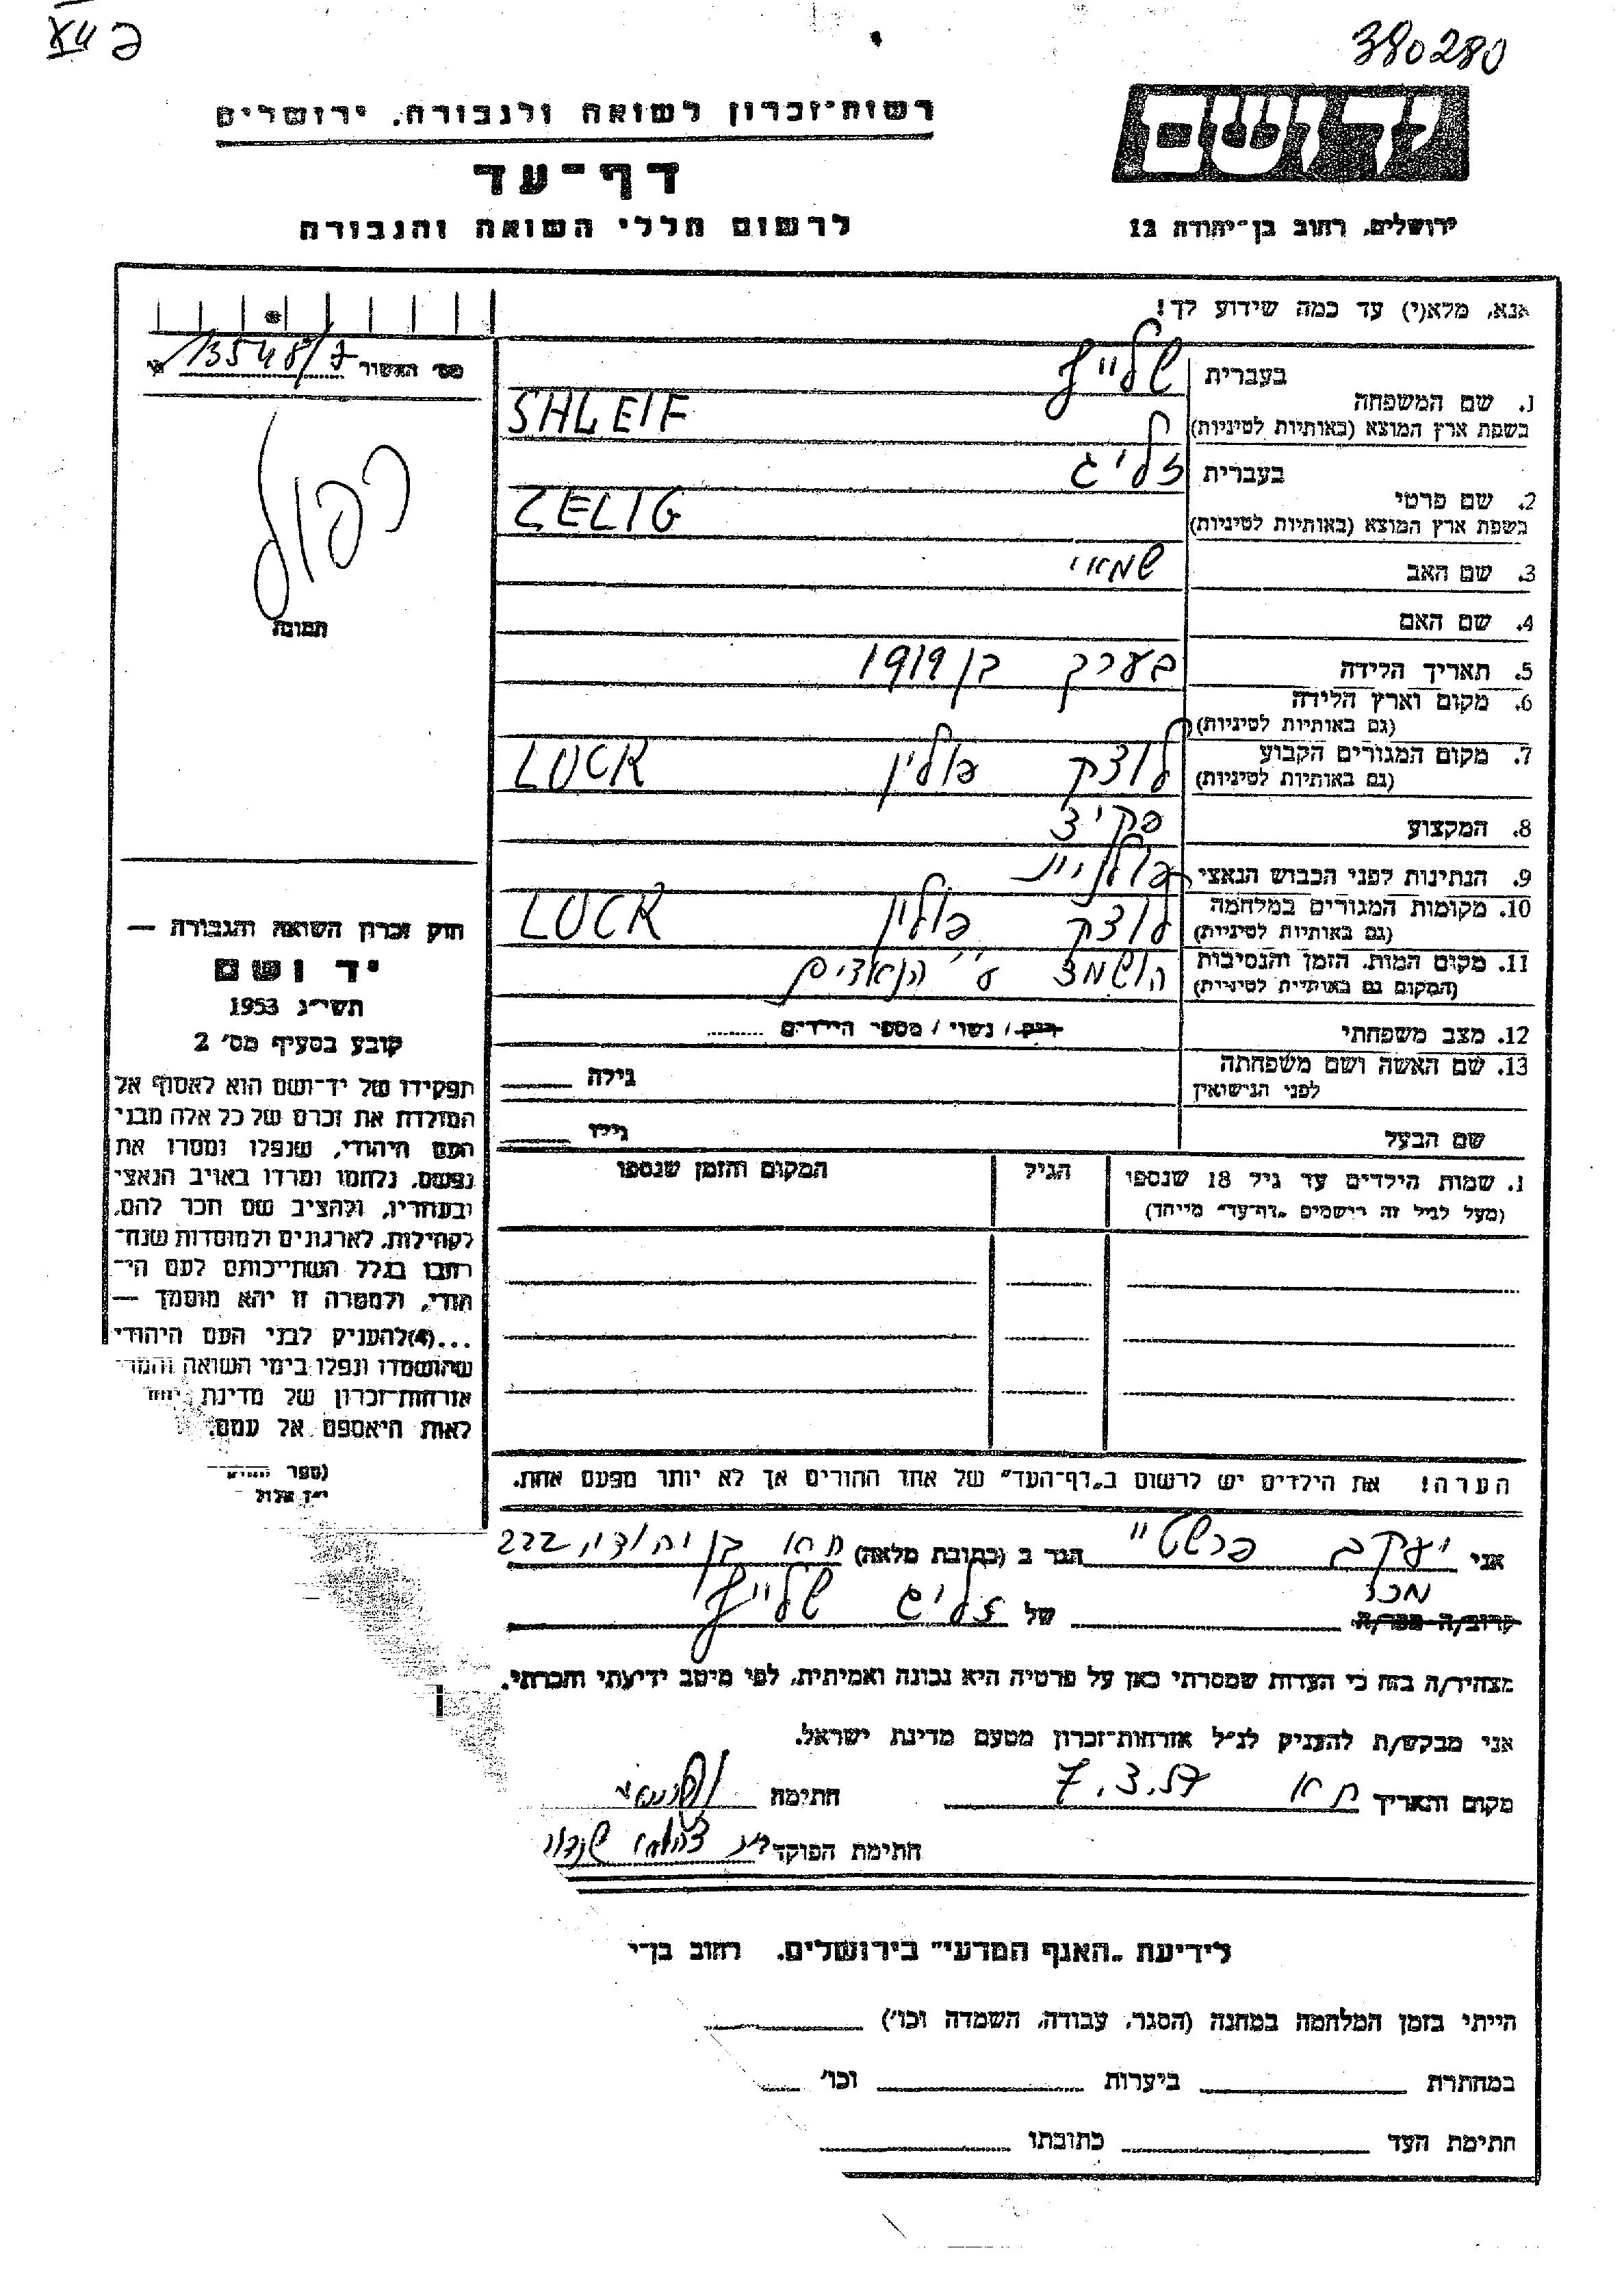 380280
רשות־זכרון לשואה ולגבורה, ירושלים
דף־עד
לרשום חללי השואה והגבורה
ידושם
ירושלים, רחוב בן־יהודה 12
אנא, מלא(י) עד כמה שידוע לך!
מס' האשור 13548/7
כפול
תמונה
בעברית שלייף
1. שם המשפחה
בשפת ארץ המוצא (באותיות לטיניות) SHLEIF
בעברית זליג
2. שם פרטי
בשפת ארץ המוצא (באותיות לטיניות) ZELIG
3. שם האב שמאי
4. שם האם
5. תאריך הלידה בערך בן 1919
6. מקום וארץ הלידה
(גם באותיות לטיניות)
7. מקום המגורים הקבוע לוצק פולין LUCK
(גם באותיות לטיניות)
8. המקצוע פקיד
9. הנתינות לפני הכבוש הנאצי פולנייה
10. מקומות המגורים במלחמה לוצק פולין LUCK
(גם באותיות לטיניות)
11. מקום המות, הזמן והנסיבות הושמד ע"י הנאצים
(המקום גם באותיות לטיניות)
12. מצב משפחתי רווק / נשוי / מספר הילדים
13. שם האשה ושם משפחתה גילה
לפני הנישואין
שם הבעל גילו
שמות הילדים עד גיל 18 שנספו הגיל המקום והזמן שנספו
(מעל לגיל זה רישמים "דף־עד" מייחד)
חוק זכרון השואה והגבורה —
יד ושם
תשי"ג 1953
קובע בסעיף מס' 2
תפקידו של יד־ושם הוא לאסוף אל
המולדת את זכרם של כל אלה מבני
העם היהודי, שנפלו ומסרו את
נפשם, נלחמו ומרדו באויב הנאצי
ובעוזריו, ולהציב שם וזכר להם,
לקהילות, לארגונים ולמוסדות שנח־
רבו בגלל השתייכותם לעם הי־
הודי, ולמטרה זו יהא מוסמך —
...(4) להעניק לבני העם היהודי
שהושמדו ונפלו בימי השואה והמרי
אזרחות־זכרון של מדינת
לאות היאספם אל עמם.
(ספר
הערה! את הילדים יש לרשום ב"דף־העד" של אחד ההורים אך לא יותר מפעם אחת.
אני יעקב פרשט" הגר ב (כתובת מלאה) תא בן יהודה 222
מכר
קרוב/ה מכר/ה של זליג שלייף
מצהיר/ה בזה כי העדות שמסרתי כאן על פרטיה היא נכונה ואמיתית, לפי מיטב ידיעתי והכרתי.
אני מבקש/ת להעניק לנ"ל אזרחות־זכרון מטעם מדינת ישראל.
מקום והתאריך תא 7.3.57 חתימה
חתימת הפוקד
לידיעת "האגף המדעי" בירושלים, רחוב בן־י
הייתי בזמן המלחמה במחנה (הסגר, עבודה, השמדה וכו')
במחתרת ביערות וכו'
חתימת העד כתובתו